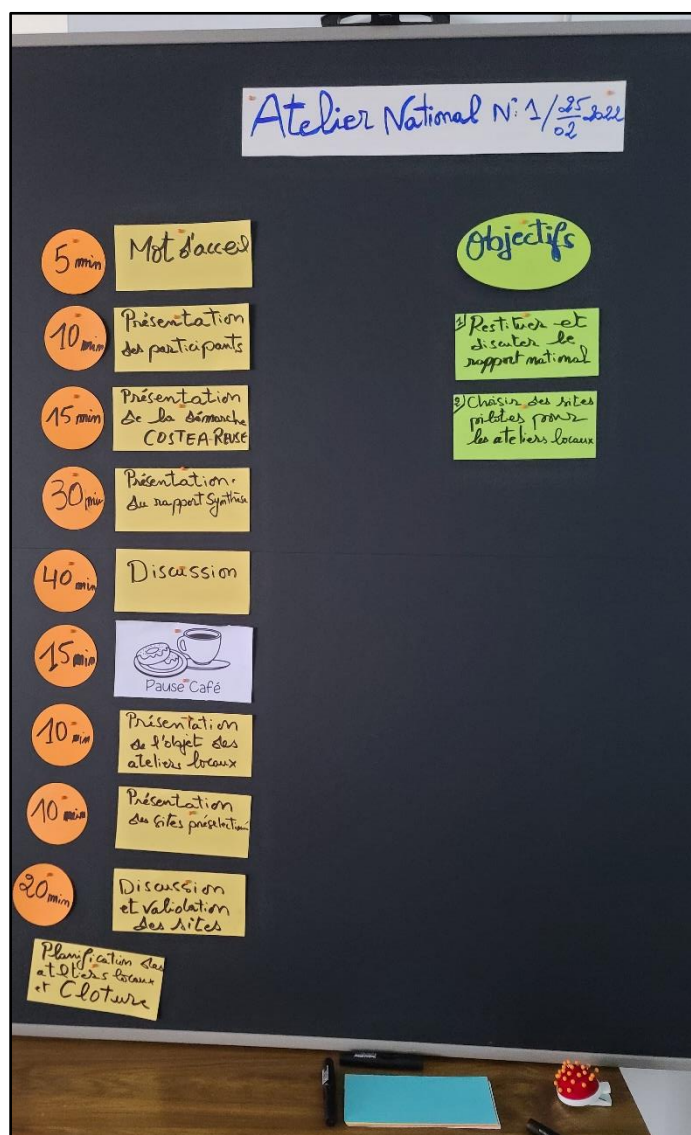 Atelier National N: 1/25/02 2022
5 min
Mot d'acceil
10 min
Présentation
des participants
15 min
Présentation
de la démarche
COSTEA-REUSE
30 min
Présentation.
du rapport Synthèse
40 min
Discussion
15 min
Pause Café
10 min
Présentation
de l'objet des
ateliers locaux
10 min
Présentation
des sites préselectionnés
20 min
Discussion
et validation
des sites
Planification des
ateliers locaux
et Cloture
Objectifs
1) Restituer et
discuter le
rapport national
2) Choisir des sites
pilotes pour
les ateliers locaux